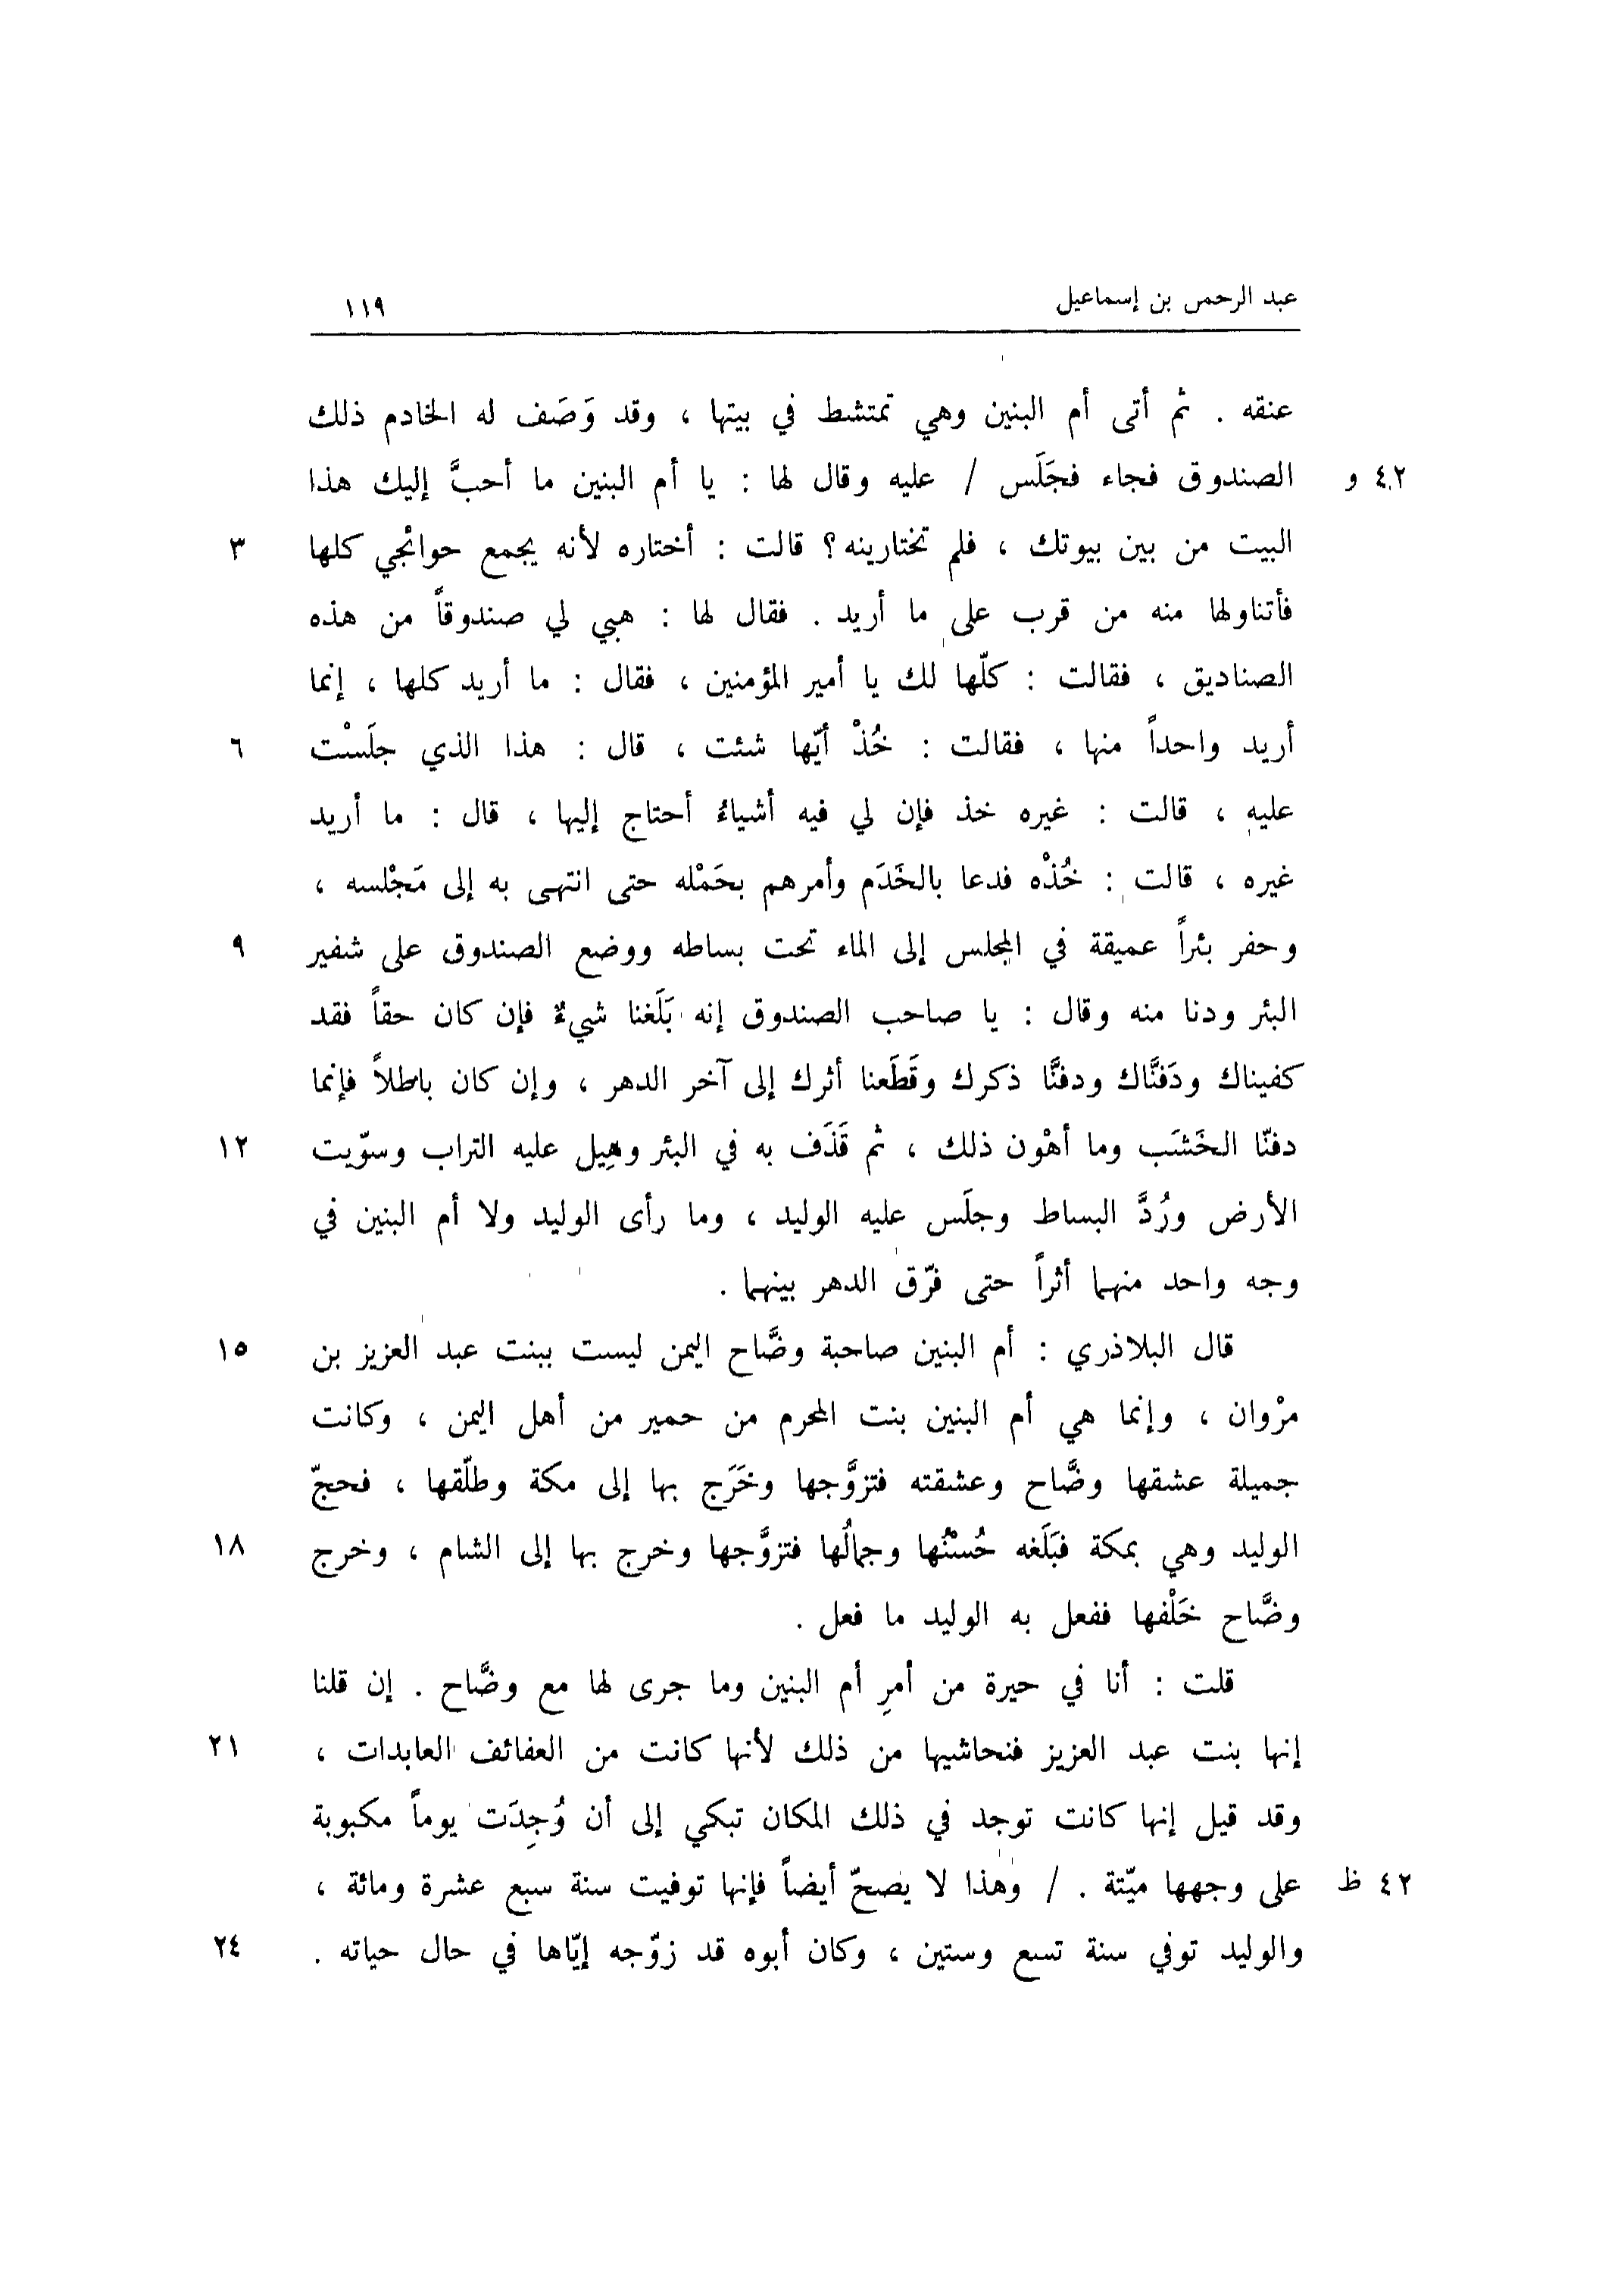 عبد الرحمن بن إسماعيل ١١٩
عنقه . ثم أتى أم البنين وهي تمتشط في بيتها ، وقد وَصَف له الخادم ذلك
٤٢ و الصندوق فجاء فجَلَس / عليه وقال لها : يا أم البنين ما أحبَّ إليك هذا
البيت من بين بيوتك ، فلم تختارينه؟ قالت : أختاره لأنه يجمع حوائجي كلها ٣
فأتناولها منه من قرب على ما أريد . فقال لها : هبي لي صندوقاً من هذه
الصناديق ، فقالت : كلّها لك يا أمير المؤمنين ، فقال : ما أريد كلها ، إنما
أريد واحداً منها ، فقالت : خُذْ أيّها شئت ، قال : هذا الذي جلَسْت ٦
عليه ، قالت : غيره خذ فإن لي فيه أشياءُ أحتاج إليها ، قال : ما أريد
غيره ، قالت : خُذْه فدعا بالخَدَم وأمرهم بحَمْله حتى انتهى به إلى مَجْلسه ،
وحفر بئراً عميقة في المجلس إلى الماء تحت بساطه ووضع الصندوق على شفير ٩
البئر ودنا منه وقال : يا صاحب الصندوق إنه بَلَغنا شيءٌ فإن كان حقاً فقد
كفيناك ودَفنَّاك ودفنَّا ذكرك وقَطَعنا أثرك إلى آخر الدهر ، وإن كان باطلاً فإنما
دفنّا الخَشَب وما أهْون ذلك ، ثم قَذَف به في البئر وهِيل عليه التراب وسوّيت ١٢
الأرض ورُدَّ البساط وجلَس عليه الوليد ، وما رأى الوليد ولا أم البنين في
وجه واحد منهما أثراً حتى فرّق الدهر بينهما .
قال البلاذري : أم البنين صاحبة وضَّاح اليمن ليست ببنت عبد العزيز بن ١٥
مرْوان ، وإنما هي أم البنين بنت المخرم من حمير من أهل اليمن ، وكانت
جميلة عشقها وضَّاح وعشقته فتزوَّجها وخَرَج بها إلى مكة وطلّقها ، فحجّ
الوليد وهي بمكة فبَلَغه حُسْنُها وجمالُها فتزوَّجها وخرج بها إلى الشام ، وخرج ١٨
وضَّاح خَلْفها ففعل به الوليد ما فعل .
قلت : أنا في حيرة من أمرِ أم البنين وما جرى لها مع وضَّاح . إن قلنا
إنها بنت عبد العزيز فنحاشيها من ذلك لأنها كانت من العفائف العابدات ، ٢١
وقد قيل إنها كانت توجد في ذلك المكان تبكي إلى أن وُجِدَت يوماً مكبوبة
٤٢ ظ على وجهها ميّتة . / وهذا لا يصحّ أيضاً فإنها توفيت سنة سبع عشرة ومائة ،
والوليد توفي سنة تسع وستين ، وكان أبوه قد زوّجه إيّاها في حال حياته . ٢٤